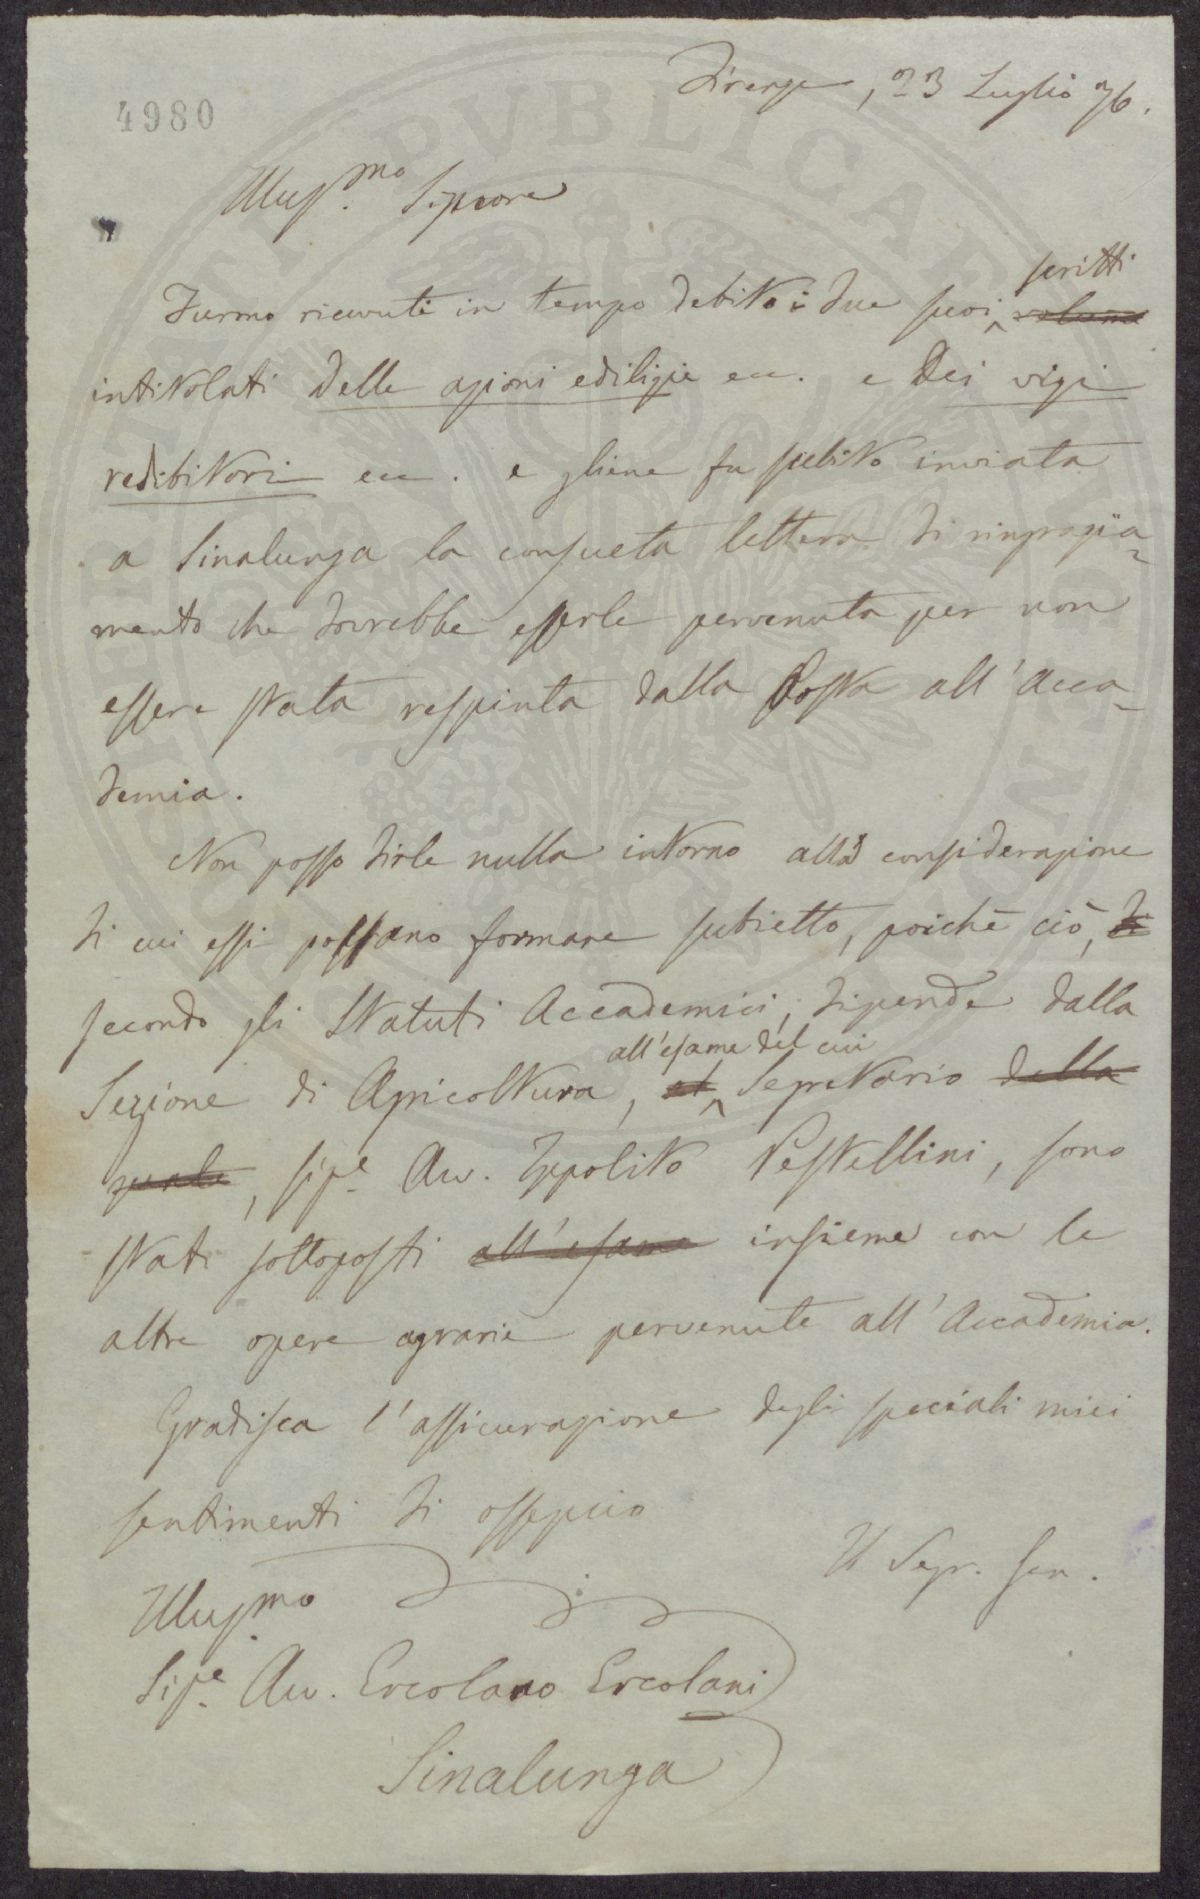 Firenze, 23 Luglio 76.
4980
Illus.mo Signore
scritti
Furono ricevuti in tempo debito i due suoi volumi
intitolati Delle azioni edilizie ecc. e Dei vizi
redibitori ecc. e gliene fu subito inviata
a Sinalunga la consueta lettera di ringrazia-
mento che dovrebbe esserle pervenuta per non
essere stata respinta dalla Posta all'Acca-
demia.
Non posso dirle nulla intorno alla considerazione
di cui essi possano formare subietto, poichè ciò, di
secondo gli Statuti Accademici, dipende dalla
all'esame del cui
Sezione di Agricoltura, al Segretario della
quale, Sig.e Avv. Ippolito Pestellini, sono
stati sottoposti all'esame insieme con le
altre opere agrarie pervenute all'Accademia.
Gradisca l'assicurazione degli speciali miei
sentimenti di ossequio
Il Segr.
Illus.mo
Sig.e Avv. Ercolano Ercolani
Sinalunga